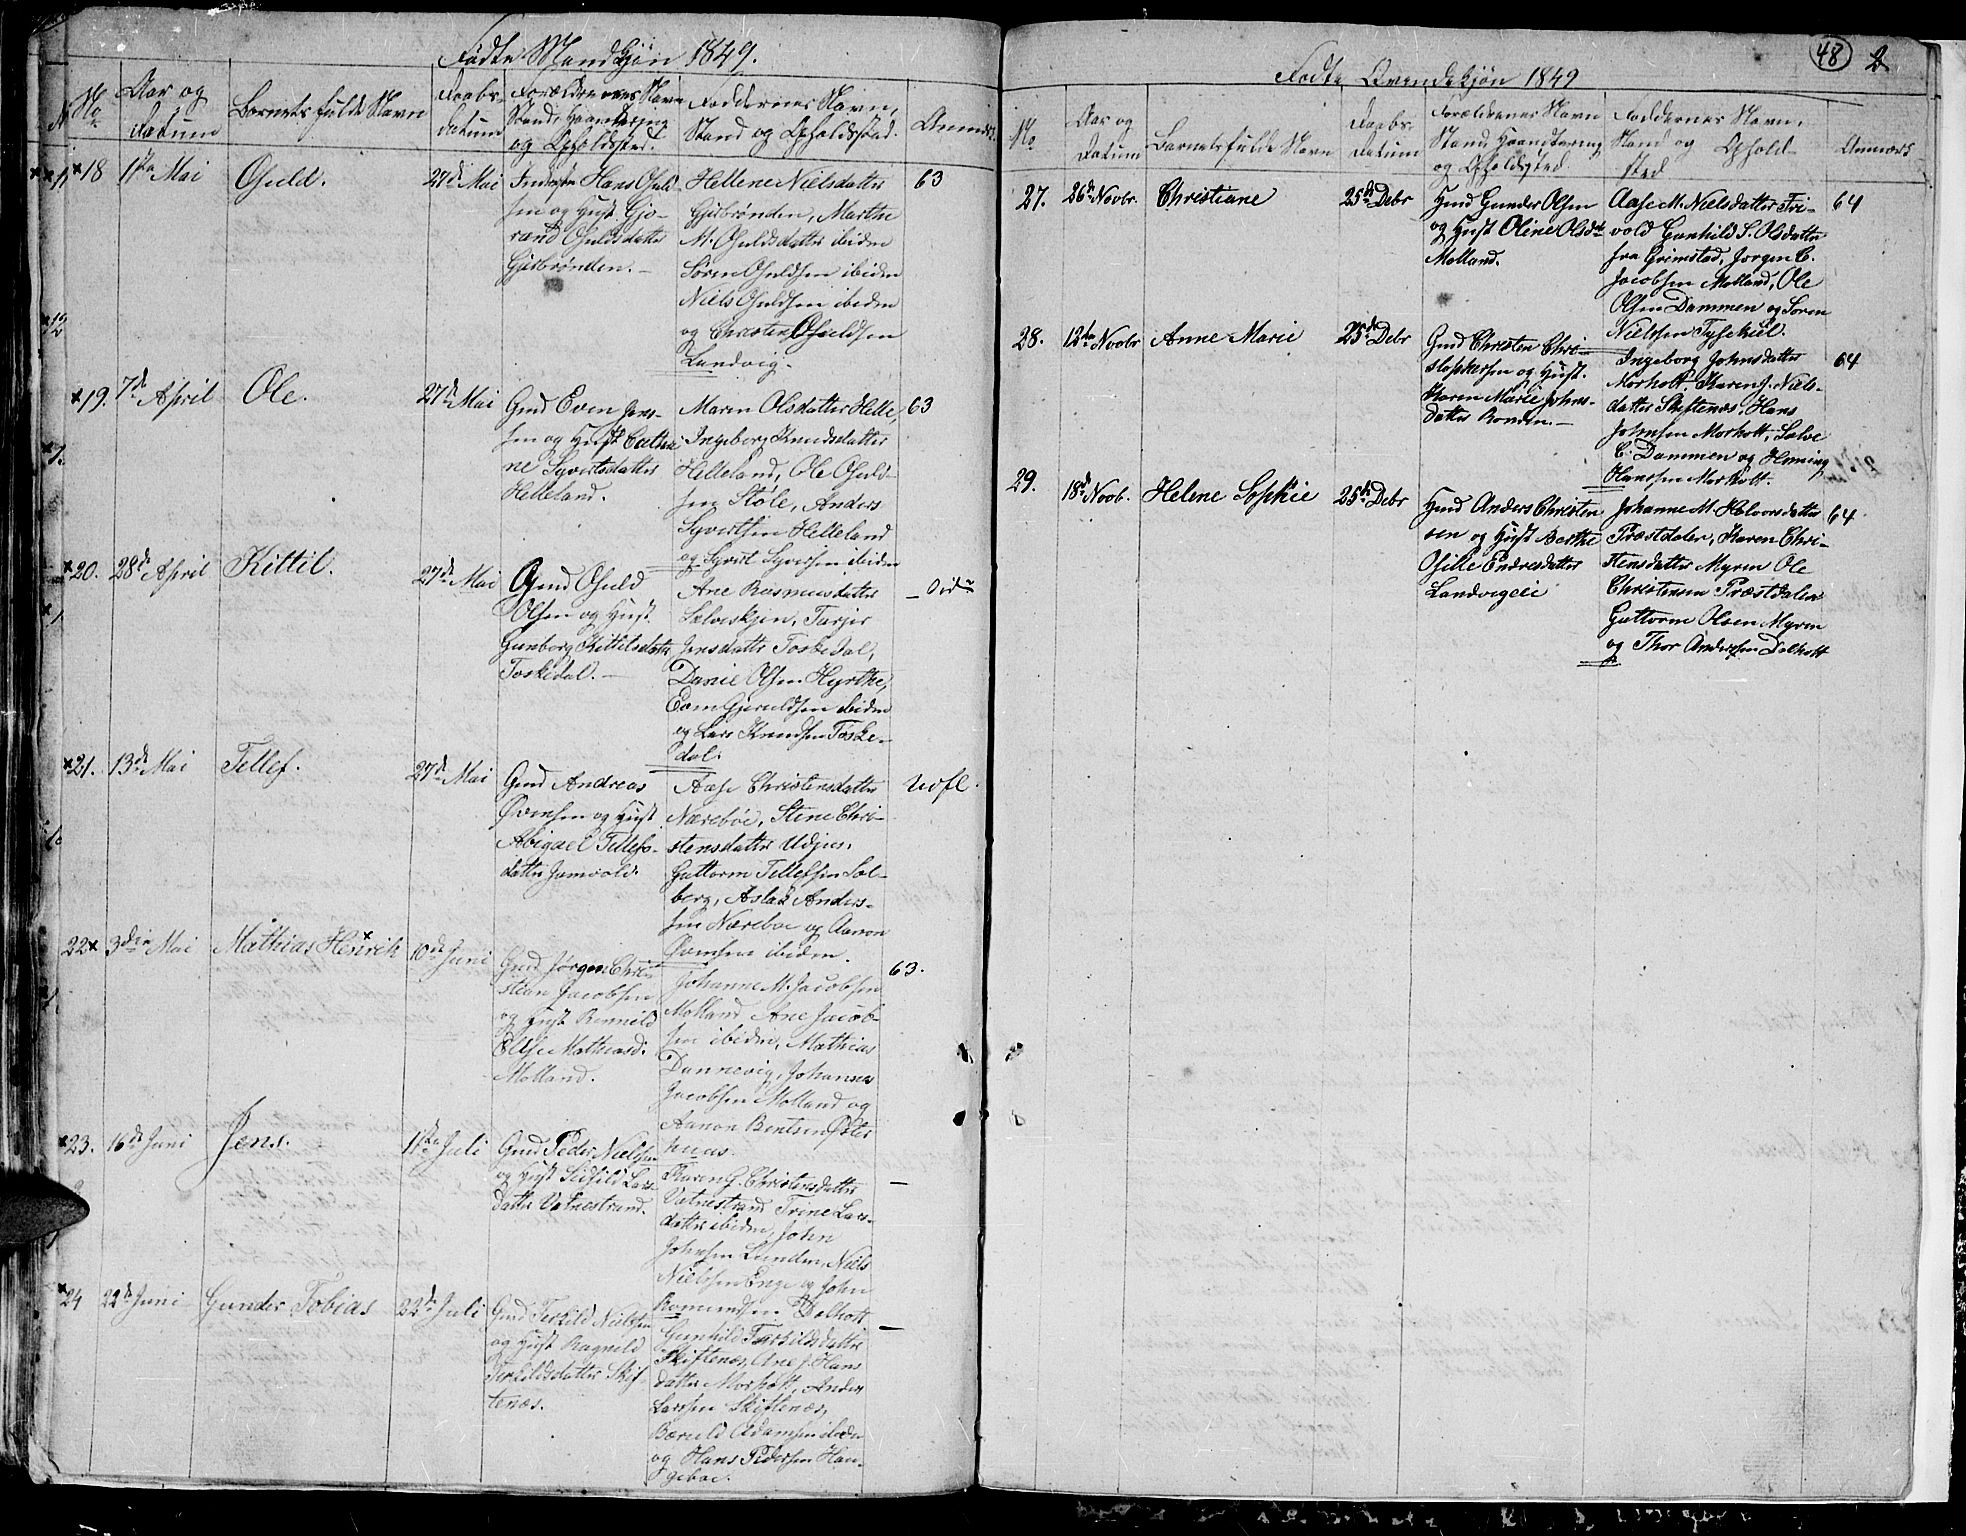 Fødte Mandkjøn 1849.
No
Aar og Datum
Barnets fulde Navn
Daabs-
datum
Forældrenes Navn
Stand, Haandtering
og Opholdsted.
Faddernes Navn,
Stand og Opholdsted.
Anmær.
18
1ste Mai
Osuld.
27de Mai
Hans Osuld-
sen og Hust. Gjo-
rand Osuldsdatter
Gjisbrønden.
Hellene Nielsdatter
Gjisbrønden, Marthe
M. Osuldsdatter ibiden
Søren Osuldsen ibiden
Niels Osuldsen ibiden
og Christen Osuldsen
Landvig.
63
19.
7de April
Ole.
27de Mai
Gmd Even Jens-
sen og Hust Cathri-
ne Syvertsdatter
Helleland.
Maren Olsdatter Helle,
Ingeborg Knudsdatter
Helleland, Ole Osuld-
sen Støle, Anders
Syvertsen Helleland
og Syvert Syversen ibiden
63
20.
28de April
Kittil.
27de Mai
Gmd Osuld
Olsen og Hust
Gunborg Kittilsdatter
Toskedal.
Ane Rasmusdatter
Salveskjen, Tarjer
Jensdatter Toskedal,
Daniel Olsen Hyrthe,
Even Gjeruldsen ibiden
og Lars Knudsen Toske-
dal.
21.
13de Mai
Tellef.
27de Mai
Gmd Andreas
Øvensen og Hust
Abigael Tellefs-
datter Jomvold.
Aase Christensdatter
Nærebøe, Stene Chri-
stensdatter Udjus,
Guttorm Tellefsen Sol-
berg, Aslak Anders-
sen Nærebøe og Aanon
Øvensen ibiden.
22
3die Mai
Mathias Henrik
10de Juni
Gmd Jørgen Chri-
stian Jacobsen
og Hust Ronnild
Else Mathiasd.
Molland.
Johanne M. Jacobsen
Molland Ane Jacob-
sen ibiden, Mathias
Dannevig, Johannes
Jacobsen Molland og
Aanon Bentsen Øster
huus.
63.
23.
16de Juni
Jens.
11te Juli
Gmd Peder Nielsen
og Hust Sidsild Lars
datter Vatnestrand.
Karen G. Christensdatter
Vatnestrand Trine Lars-
datter ibiden, John
Johnsen Lunden, Niels
Nielsen Enge og John
Romundsen Dalhott
24
22de Juni
Gunder Tobias
22de Juli
Gmd Terkild Nielsen
og Hust Ragnild
Terkildsdatter Skif-
tenæs.
Gunhild Terkildsdatter
Skiftenæs, Ane J. Hans
datter Morholt, Anders
Larssen Skiftenæs,
Bæruld Adamsen ibiden
og Hans Pedersen Hau-
geboe.
48
2
Fødte Qvindekjøn 1849
No
Aar og
Datum
Barnets fulde Navn
Daabs-
Datum
Forældrenes Navn
Stand, Haandtering
og Opholdsted
Faddernes Navn,
Stand og Ophold-
sted
Anmærk-
27.
26de Novbr
Christiane
25de Debr
Gmd Gunder Olsen
og Hust Oline Olsdtr
Molland.
Aase M. Nielsdatter Fri-
vold Gunhild S. Olsdatter
fra Grimstad, Jørgen C.
Jacobsen Molland, Ole
Olsen Dammen og Søren
Nielssen Tysekiil.
64
28.
12te Novbr
Anne Marie
25de Debr
Gmd Christen Chri-
stophersen og Hust.
Karen Marie Johns-
datter Ronden.
Ingeborg Johnsdatter
Morholt Karen J. Niels-
datter Skiftenæs, Hans
Johnsen Morholt, Salve
C. Dammen og Henning
Hanssen Morholt.
64
29.
18de Novb.
Helene Sophie
25de Debr
Gmd Anders Christen
sen og Hust Berthe
Osille Endresdatter
Landvigeie
Johanne M. Halvorsdatter
Præstdalen, Karen Chri-
stensdatter Myren Ole
Christensen Præstdalen
Guttorm Olsen Myren
og Thor Anderssen Dalhott
64